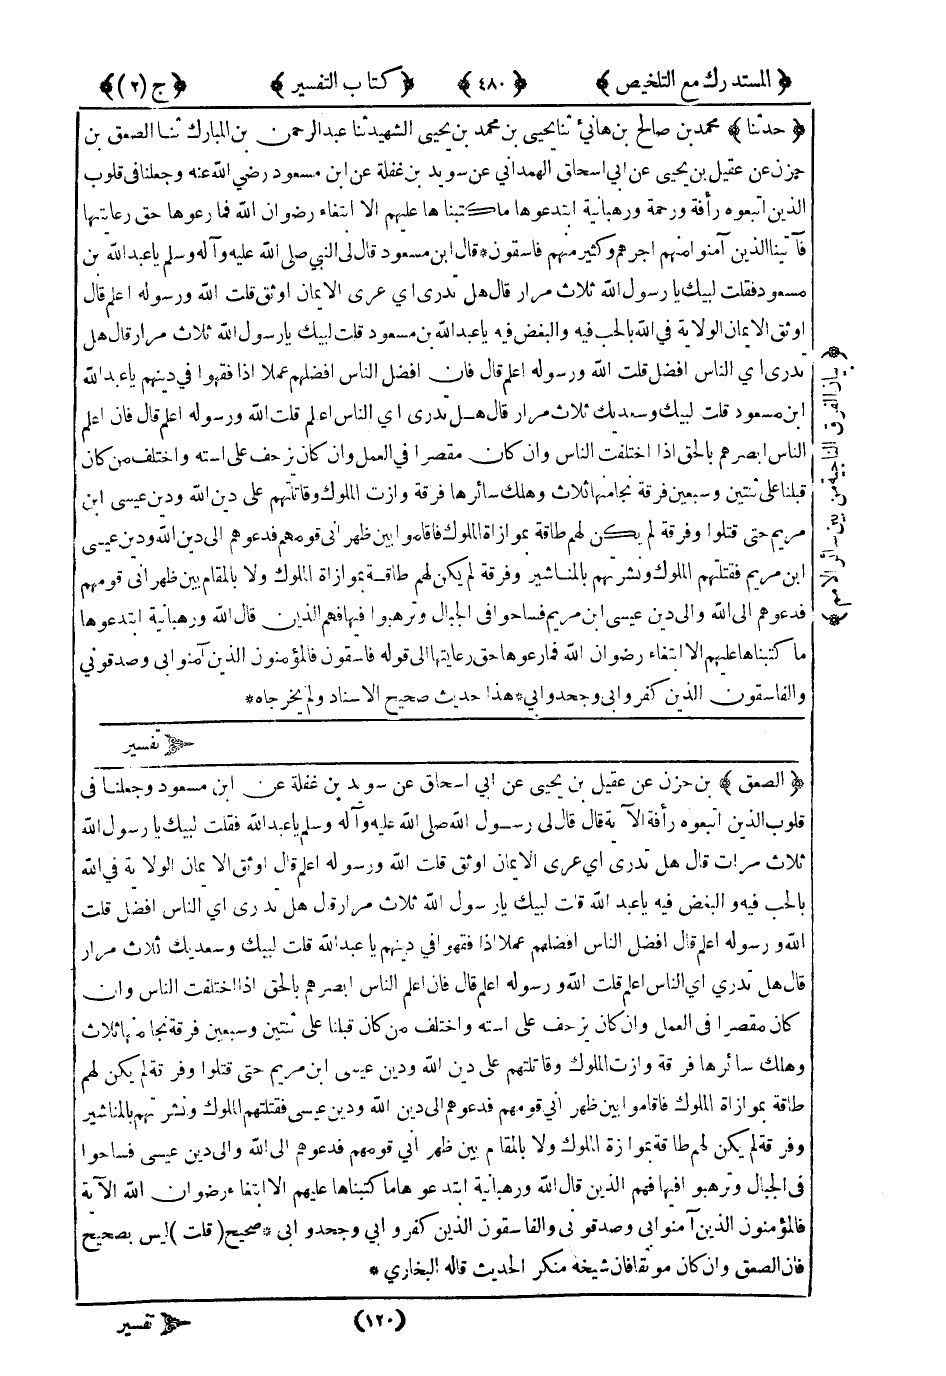 ﴿ المستدرك مع التلخيص ﴾ ﴿ ٤٨٠ ﴾ ﴿ كتاب التفسير ﴾ ﴿ ج (٢) ﴾
﴿ حدثنا ﴾ محمد بن صالح بن هانئ ثنا يحيى بن محمد بن يحيى الشهيد ثنا عبد الرحمن بن المبارك ثنا الصعق بن
حزن عن عقيل بن يحيى عن ابي اسحاق الهمداني عن سويد بن غفلة عن ابن مسعود رضي الله عنه وجعلنا فى قلوب
الذين اتبعوه رأفة ورحمة ورهبانية ابتدعوها ما كتبنا ها عليهم الا ابتغاء رضوان الله فما رعوها حق رعايتها
فآتينا الذين آمنوا منهم اجرهم وكثير منهم فاسقون * قال ابن مسعود قال لى النبي صلى الله عليه وآله وسلم ياعبد الله بن
مسعود فقلت لبيك يا رسول الله ثلاث مرار قال هل تدرى اي عرى الايمان اوثق قلت الله ورسوله اعلم قال
اوثق الايمان الولاية في الله بالحب فيه والبغض فيه ياعبد الله بن مسعود قلت لبيك يارسول الله ثلاث مرار قال هل
تدرى اي الناس افضل قلت الله ورسوله اعلم قال فان افضل الناس افضلهم عملا اذا فقهوا في دينهم ياعبد الله
ابن مسعود قلت لبيك وسعديك ثلاث مرار قال هل تدرى اي الناس اعلم قلت الله ورسوله اعلم قال فان اعلم
الناس ابصرهم بالحق اذا اختلفت الناس وان كان مقصرا في العمل وان كان يزحف على استه واختلف من كان
قبلنا على ثنتين وسبعين فرقة نجا منها ثلاث وهلك سائرها فرقة وازت الملوك وقاتلتهم على دين الله ودين عيسى ابن
مريم حتى قتلوا وفرقة لم يكن لهم طاقة بموازاة الملوك فاقاموا بين ظهرانى قومهم فدعوهم الى دين الله ودين عيسى
ابن مريم فقتلتهم الملوك ونشرتهم بالمناشير وفرقة لم يكن لهم طاقة بموازاة الملوك ولا بالمقام بين ظهرانى قومهم
فدعوهم الى الله والى دين عيسى ابن مريم فساحوا فى الجبال وترهبوا فيها فهم الذين قال الله ورهبانية ابتدعوها
ما كتبناها عليهم الا ابتغاء رضوان الله فما رعوها حق رعايتها الى قوله فاسقون فالمؤمنون الذين آمنوا بى وصدقوني
والفاسقون الذين كفروا بى وجحدوا بي * هذا حديث صحيح الاسناد ولم يخرجاه *
﴿ بيان الفرق الناجية من بين سائر الامم ﴾
تفسير
﴿ الصعق ﴾ بن حزن عن عقيل بن يحيى عن ابي اسحاق عن سويد بن غفلة عن ابن مسعود وجعلنا فى
قلوب الذين اتبعوه رأفة الآية قال قال لى رسول الله صلى الله عليه وآله وسلم ياعبد الله فقلت لبيك يا رسول الله
ثلاث مرات قال هل تدرى اي عرى الايمان اوثق قلت الله ورسوله اعلم قال اوثق الايمان الولاية في الله
بالحب فيه والبغض فيه ياعبد الله قلت لبيك يارسول الله ثلاث مرار قال هل تدرى اي الناس افضل قلت
الله ورسوله اعلم قال افضل الناس افضلهم عملا اذا فقهوا في دينهم يا عبد الله قلت لبيك وسعديك ثلاث مرار
قال هل تدري اي الناس اعلم قلت الله ورسوله اعلم قال فان اعلم الناس ابصرهم بالحق اذا اختلفت الناس وان
كان مقصرا فى العمل وان كان يزحف على استه واختلف من كان قبلنا على ثنتين وسبعين فرقة نجا منها ثلاث
وهلك سائرها فرقة وازت الملوك وقاتلتهم على دين الله ودين عيسى ابن مريم حتى قتلوا وفرقة لم يكن لهم
طاقة بموازاة الملوك فاقاموا بين ظهرانى قومهم فدعوهم الى دين الله ودين عيسى فقتلتهم الملوك ونشرتهم بالمناشير
وفرقة لم يكن لهم طاقة بموازة الملوك ولا بالمقام بين ظهراني قومهم فدعوهم الى الله والى دين عيسى فساحوا
فى الجبال وترهبوا فيها فهم الذين قال الله ورهبانية ابتدعوها ما كتبناها عليهم الا ابتغاء رضوان الله الآية
فالمؤمنون الذين آمنوا بى وصدقونى والفاسقون الذين كفروا بي وجحدوا بى * صحيح (قلت) ليس بصحيح
فان الصعق وان كان موثقا فان شيخه منكر الحديث قاله البخاري *
(١٢٠) تفسير